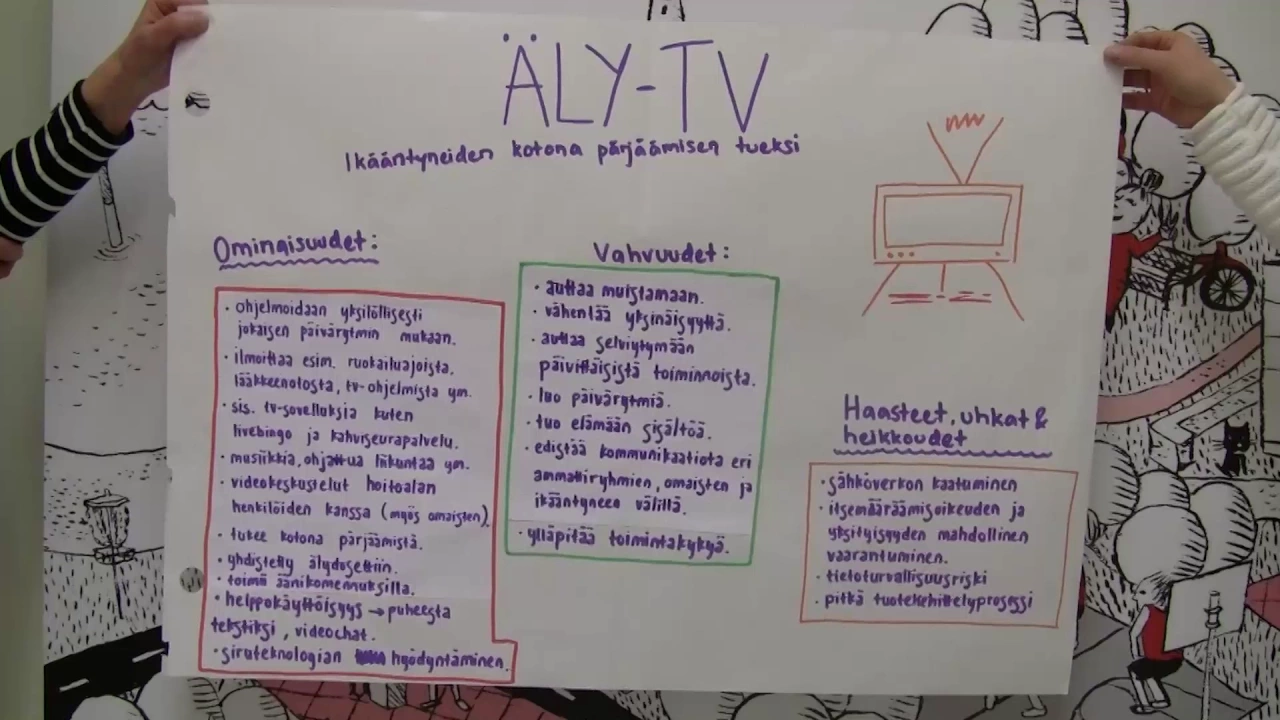 ÄLY-TV
Ikääntyneiden kotona pärjäämisen tueksi
Ominaisuudet:
· ohjelmoidaan yksilöllisesti
jokaisen päivärytmin mukaan.
· ilmoittaa esim. ruokailuajoista,
lääkkeenotosta, tv-ohjelmista ym.
· sis. tv-sovelluksia kuten
livebingo ja kahviseurapalvelu.
· musiikkia, ohjattua liikuntaa ym.
· videokeskustelut hoitoalan
henkilöiden kanssa (myös omaisten).
· tukee kotona pärjäämistä.
· yhdistetty älydosettiin.
· toimii äänikomennuksilla.
· helppokäyttöisyys → puheesta
tekstiksi, videochat.
· siruteknologian hyödyntäminen.
Vahvuudet:
· auttaa muistamaan.
· vähentää yksinäisyyttä.
· auttaa selviytymään
päivittäisistä toiminnoista.
· luo päivärytmiä.
· tuo elämään sisältöä.
· edistää kommunikaatiota eri
ammattiryhmien, omaisten ja
ikääntyneen välillä.
· ylläpitää toimintakykyä.
Haasteet, uhkat &
heikkoudet
· sähköverkon kaatuminen
· itsemääräämisoikeuden ja
yksityisyyden mahdollinen
vaarantuminen.
· tietoturvallisuusriski
· pitkä tuotekehittelyprosessi